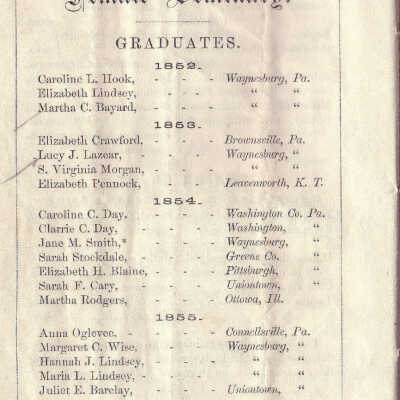 Female Seminary.
GRADUATES.
1852.
Caroline L. Hook, - - - Waynesburg, Pa.
Elizabeth Lindsey, - - - " "
Martha C. Bayard, - - - " "
1853.
Elizabeth Crawford, - - - Brownsville, Pa.
Lucy J. Lazear, - - - - Waynesburg, "
S. Virginia Morgan, - - - " "
Elizabeth Pennock, - - - Leavenworth, K. T.
1854.
Caroline C. Day, - - - Washington Co. Pa.
Clarrie C. Day, - - - - Washington, "
Jane M. Smith,* - - - Waynesburg, "
Sarah Stockdale, - - - - Greene Co. "
Elizabeth H. Blaine, - - - Pittsburgh, "
Sarah F. Cary, - - - - Uniontown, "
Martha Rodgers, - - - - Ottowa, Ill.
1855.
Anna Oglevee, - - - - Connellsville, Pa.
Margaret C. Wise, - - - - Waynesburg, "
Hannah J. Lindsey, - - - - " "
Maria L. Lindsey, - - - - " "
Juliet E. Barclay, - - - - Uniontown, "